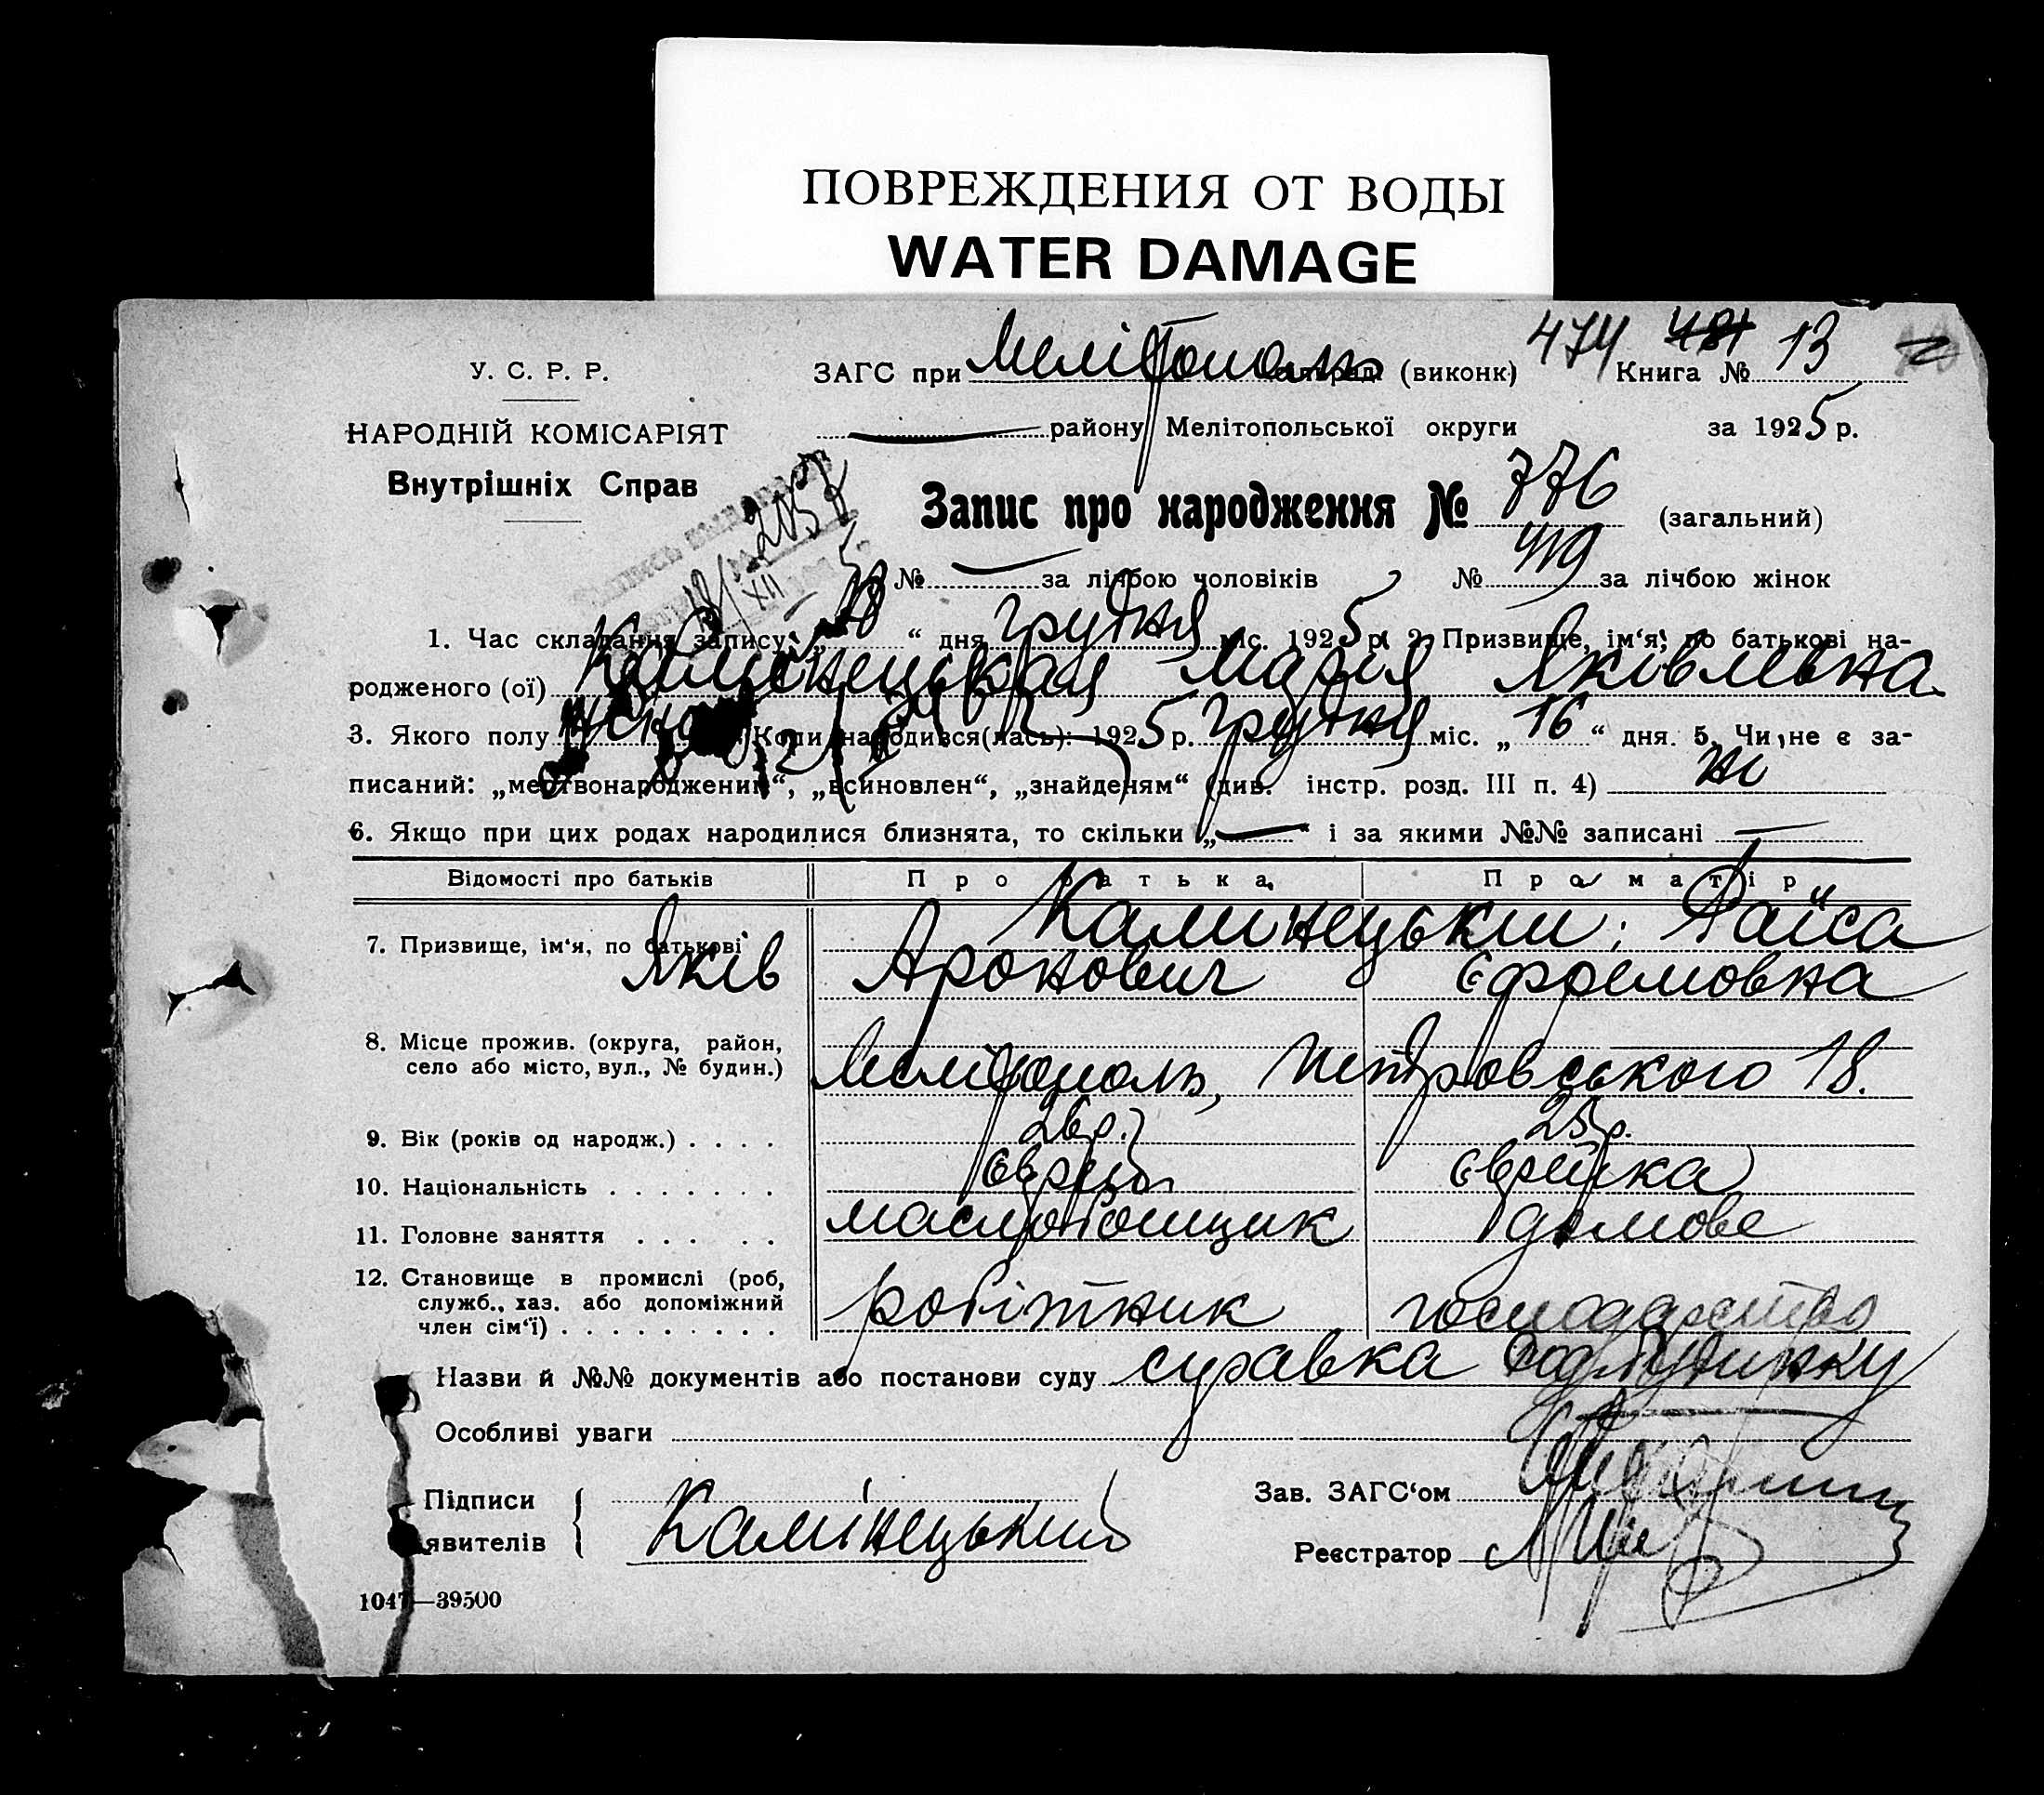 ПОВРЕЖДЕНИЯ ОТ ВОДЫ
WATER DAMAGE
У. С. Р. Р.
НАРОДНІЙ КОМІСАРІЯТ
Внутрішніх Справ
ЗАГС при Мелітополь (виконк) 474 Книга № 13
району Мелітопольської округи за 1925 р.
Запис про народження № 776 (загальний)
№ за лічбою чоловіків № 419 за лічбою жінок
2057
18/XII
1. Час складання запису: „18“ дня грудня міс. 1925 р. 2. Призвище, ім‘я, по батькові на-
родженого (ої) Камінецькая Марія Яківлевна
3. Якого полу Коли народився(лась): 1925 р. грудня міс. „16“ дня. 5. Чи не є за-
писаний: „мертвонароджений“, „всиновлен“, „знайденям“ (див. інстр. розд. III п. 4) ні
6. Якщо при цих родах народилися близнята, то скільки „ “ і за якими №№ записані
Відомості про батьків Про батька Про матір
7. Призвище, ім‘я, по батькові Камінецький Яків Аронович Раїса Єфремовна
8. Місце прожив. (округа, район,
село або місто, вул., № будин.) Мелітополь, Петровського 18.
9. Вік (років од народж.) . . . . 26 р. 25 р.
10. Національність . . . . . . . єврей єврейка
11. Головне заняття . . . . . маслобойщик домове
12. Становище в промислі (роб,
служб., хаз. або допоміжний
член сім‘ї) . . . . . . . . . робітник господарство
Назви й №№ документів або постанови суду справка
Особливі уваги
Підписи
явителів Камінецький
Зав. ЗАГС‘ом
Реєстратор
1047—39500